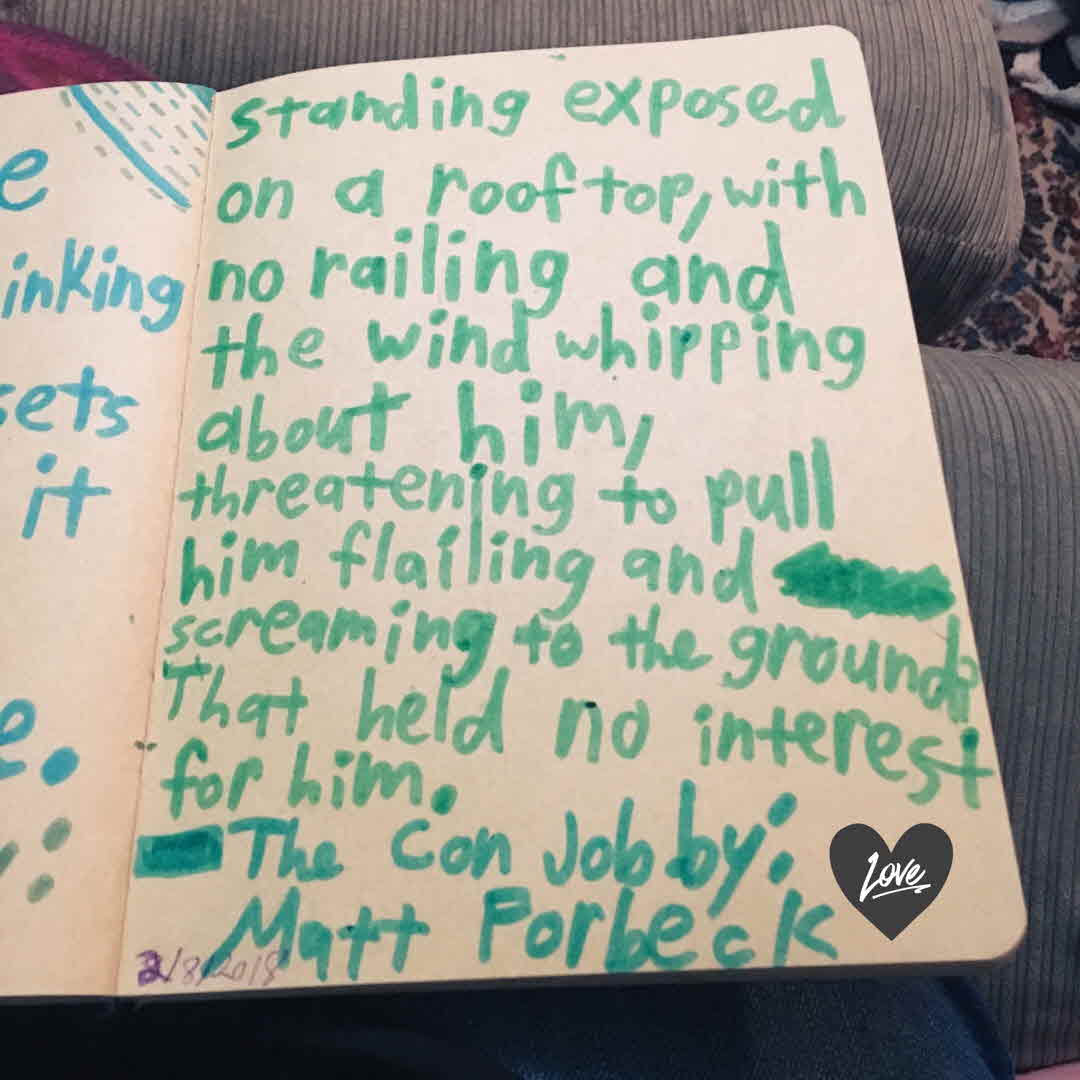 e
inking
sets
it
e.
standing exposed
on a rooftop, with
no railing and
the wind whipping
about him,
threatening to pull
him flailing and
screaming to the ground?
That held no interest
for him.
The Con Job by:
Matt Forbeck
2/8/2018
Love